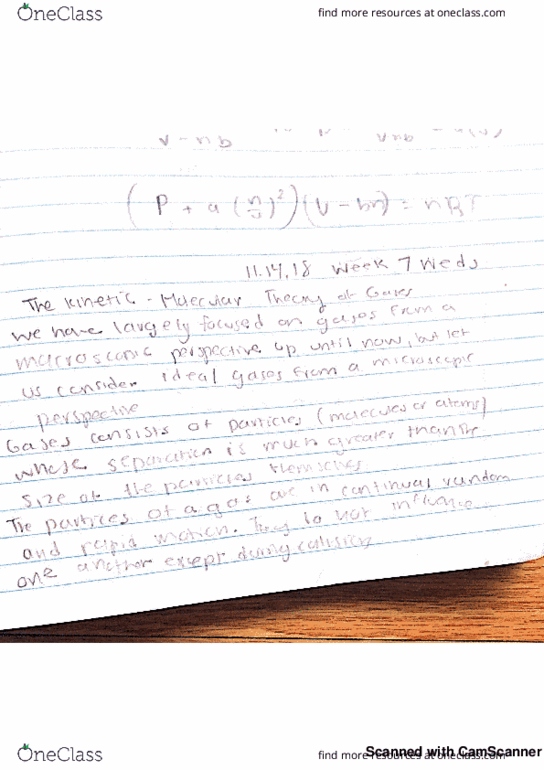 OneClass
find more resources at oneclass.com
V - nb
(P + a (n/V)²)(V - bn) = nRT
11.14.18 Week 7 Weds
The Kinetic - Molecular Theory of Gases
We have largely focused on gases from a
macroscopic perspective up until now, but let
us consider ideal gases from a microscopic
perspective
Gases consists of particles (molecules or atoms)
whose separation is much greater than the
size of the particles themselves
The particles of a gas are in continual random
and rapid motion. They do not influence
one another except during collisions
OneClass
find more resources at oneclass.com
Scanned with CamScanner